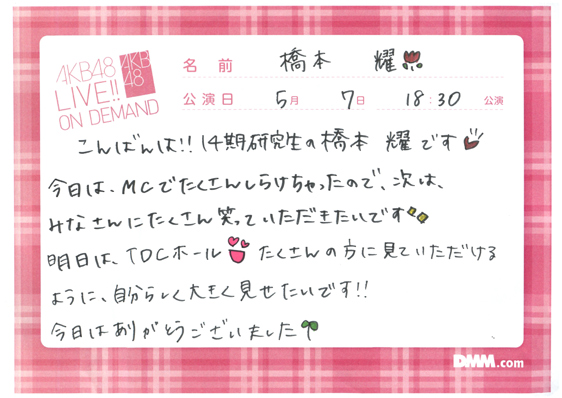 AKB48
LIVE!!
ON DEMAND
AKB
48
名前 橋本 耀
公演日 5月 7日 18:30 公演
こんばんは!! 14期研究生の橋本 耀です
今日は、MCでたくさんしらけちゃったので、次は、
みなさんにたくさん笑っていただきたいです
明日は、TDCホール たくさんの方に見ていただける
ように、自分らしく大きく見せたいです!!
今日はありがとうございました
DMM.com